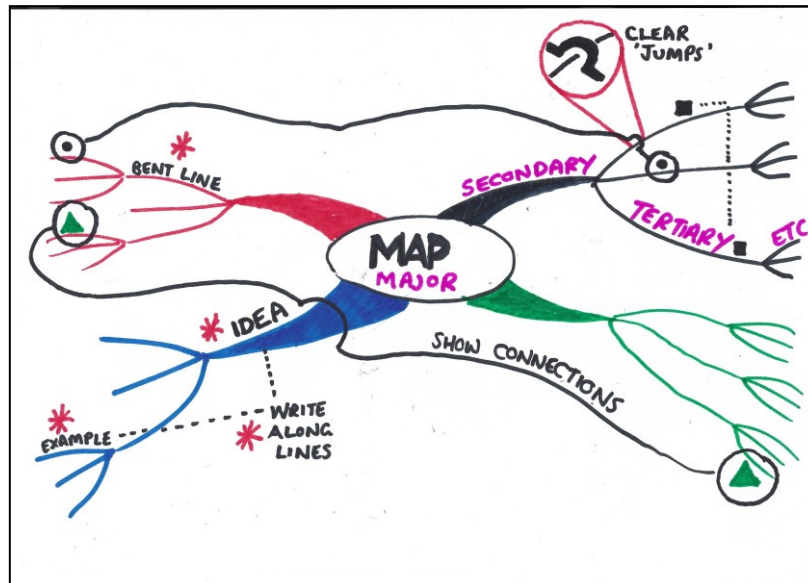 CLEAR
'JUMPS'
BENT LINE
SECONDARY
TERTIARY
ETC
MAP
MAJOR
IDEA
SHOW CONNECTIONS
EXAMPLE
WRITE
ALONG
LINES